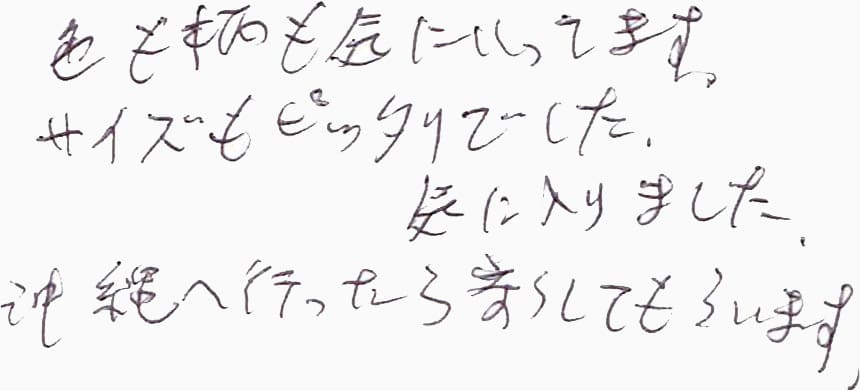 色も柄も気に入ってます。
サイズもピッタリでした.
気に入りました.
沖縄へ行ったら寄らしてもらいます,